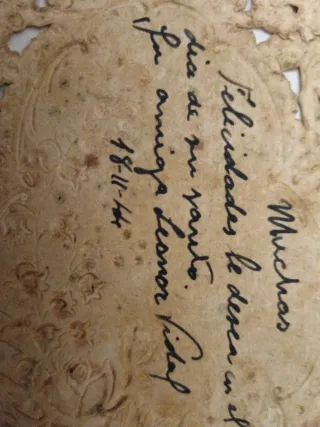 Muchas
Felicidades le desea en el
dia de su santo.
Su amiga Leonor Vidal
18-11-44